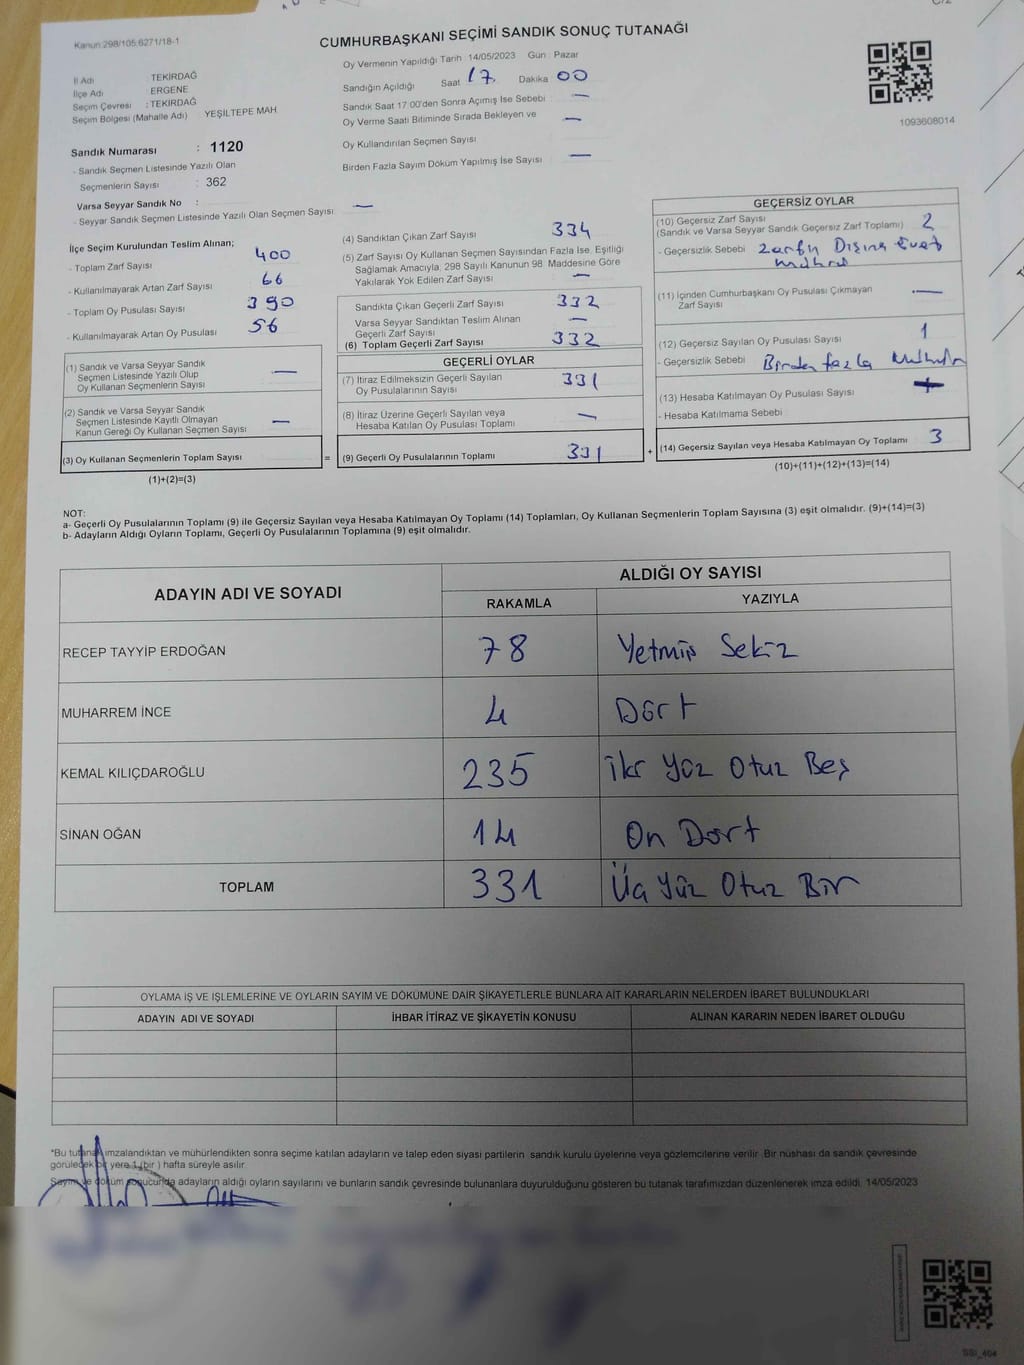 Kanun:298/105.6271/18-1
CUMHURBAŞKANI SEÇİMİ SANDIK SONUÇ TUTANAĞI
İl Adı TEKİRDAĞ
İlçe Adı ERGENE
Seçim Çevresi : TEKİRDAĞ
Seçim Bölgesi (Mahalle Adı) YEŞİLTEPE MAH
Sandık Numarası : 1120
- Sandık Seçmen Listesinde Yazılı Olan
Seçmenlerin Sayısı : 362
Varsa Seyyar Sandık No :
- Seyyar Sandık Seçmen Listesinde Yazılı Olan Seçmen Sayısı —
Oy Vermenin Yapıldığı Tarih 14/05/2023 Gün : Pazar
Sandığın Açıldığı Saat 17 Dakika 00
Sandık Saat 17:00'den Sonra Açımış İse Sebebi —
Oy Verme Saati Bitiminde Sırada Bekleyen ve
Oy Kullandırılan Seçmen Sayısı —
Birden Fazla Sayım Döküm Yapılmış İse Sayısı —
1093608014
İlçe Seçim Kurulundan Teslim Alınan;
- Toplam Zarf Sayısı 400
- Kullanılmayarak Artan Zarf Sayısı 66
- Toplam Oy Pusulası Sayısı 390
- Kullanılmayarak Artan Oy Pusulası 56
(1) Sandık ve Varsa Seyyar Sandık
Seçmen Listesinde Yazılı Olup
Oy Kullanan Seçmenlerin Sayısı —
(2) Sandık ve Varsa Seyyar Sandık
Seçmen Listesinde Kayıtlı Olmayan
Kanun Gereği Oy Kullanan Seçmen Sayısı —
(3) Oy Kullanan Seçmenlerin Toplam Sayısı =
(1)+(2)=(3)
(4) Sandıktan Çıkan Zarf Sayısı 334
(5) Zarf Sayısı Oy Kullanan Seçmen Sayısından Fazla İse, Eşitliği
Sağlamak Amacıyla, 298 Sayılı Kanunun 98. Maddesine Göre
Yakılarak Yok Edilen Zarf Sayısı —
Sandıkta Çıkan Geçerli Zarf Sayısı 332
Varsa Seyyar Sandıktan Teslim Alınan
Geçerli Zarf Sayısı —
(6) Toplam Geçerli Zarf Sayısı 332
GEÇERLİ OYLAR
(7) İtiraz Edilmeksizin Geçerli Sayılan
Oy Pusulalarının Sayısı 331
(8) İtiraz Üzerine Geçerli Sayılan veya
Hesaba Katılan Oy Pusulası Toplamı —
(9) Geçerli Oy Pusulalarının Toplamı 331 +
GEÇERSİZ OYLAR
(10) Geçersiz Zarf Sayısı
(Sandık ve Varsa Seyyar Sandık Geçersiz Zarf Toplamı) 2
- Geçersizlik Sebebi Zarfın Dışına Evet
(11) İçinden Cumhurbaşkanı Oy Pusulası Çıkmayan
Zarf Sayısı —
(12) Geçersiz Sayılan Oy Pusulası Sayısı 1
- Geçersizlik Sebebi Birden fazla
(13) Hesaba Katılmayan Oy Pusulası Sayısı
- Hesaba Katılmama Sebebi
(14) Geçersiz Sayılan veya Hesaba Katılmayan Oy Toplamı 3
(10)+(11)+(12)+(13)=(14)
NOT:
a- Geçerli Oy Pusulalarının Toplamı (9) ile Geçersiz Sayılan veya Hesaba Katılmayan Oy Toplamı (14) Toplamları, Oy Kullanan Seçmenlerin Toplam Sayısına (3) eşit olmalıdır. (9)+(14)=(3)
b- Adayların Aldığı Oyların Toplamı, Geçerli Oy Pusulalarının Toplamına (9) eşit olmalıdır.
ADAYIN ADI VE SOYADI ALDIĞI OY SAYISI
RAKAMLA YAZIYLA
RECEP TAYYİP ERDOĞAN 78 Yetmiş Sekiz
MUHARREM İNCE 4 Dört
KEMAL KILIÇDAROĞLU 235 İki Yüz Otuz Beş
SİNAN OĞAN 14 On Dört
TOPLAM 331 Üç Yüz Otuz Bir
OYLAMA İŞ VE İŞLEMLERİNE VE OYLARIN SAYIM VE DÖKÜMÜNE DAİR ŞİKAYETLERLE BUNLARA AİT KARARLARIN NELERDEN İBARET BULUNDUKLARI
ADAYIN ADI VE SOYADI İHBAR İTİRAZ VE ŞİKAYETİN KONUSU ALINAN KARARIN NEDEN İBARET OLDUĞU
*Bu tutanak imzalandıktan ve mühürlendikten sonra seçime katılan adayların ve talep eden siyasi partilerin sandık kurulu üyelerine veya gözlemcilerine verilir. Bir nüshası da sandık çevresinde
görülecek bir yere 1 (bir ) hafta süreyle asılır.
Sayım ve döküm sonucunda adayların aldığı oyların sayılarını ve bunların sandık çevresinde bulunanlara duyurulduğunu gösteren bu tutanak tarafımızdan düzenlenerek imza edildi. 14/05/2023